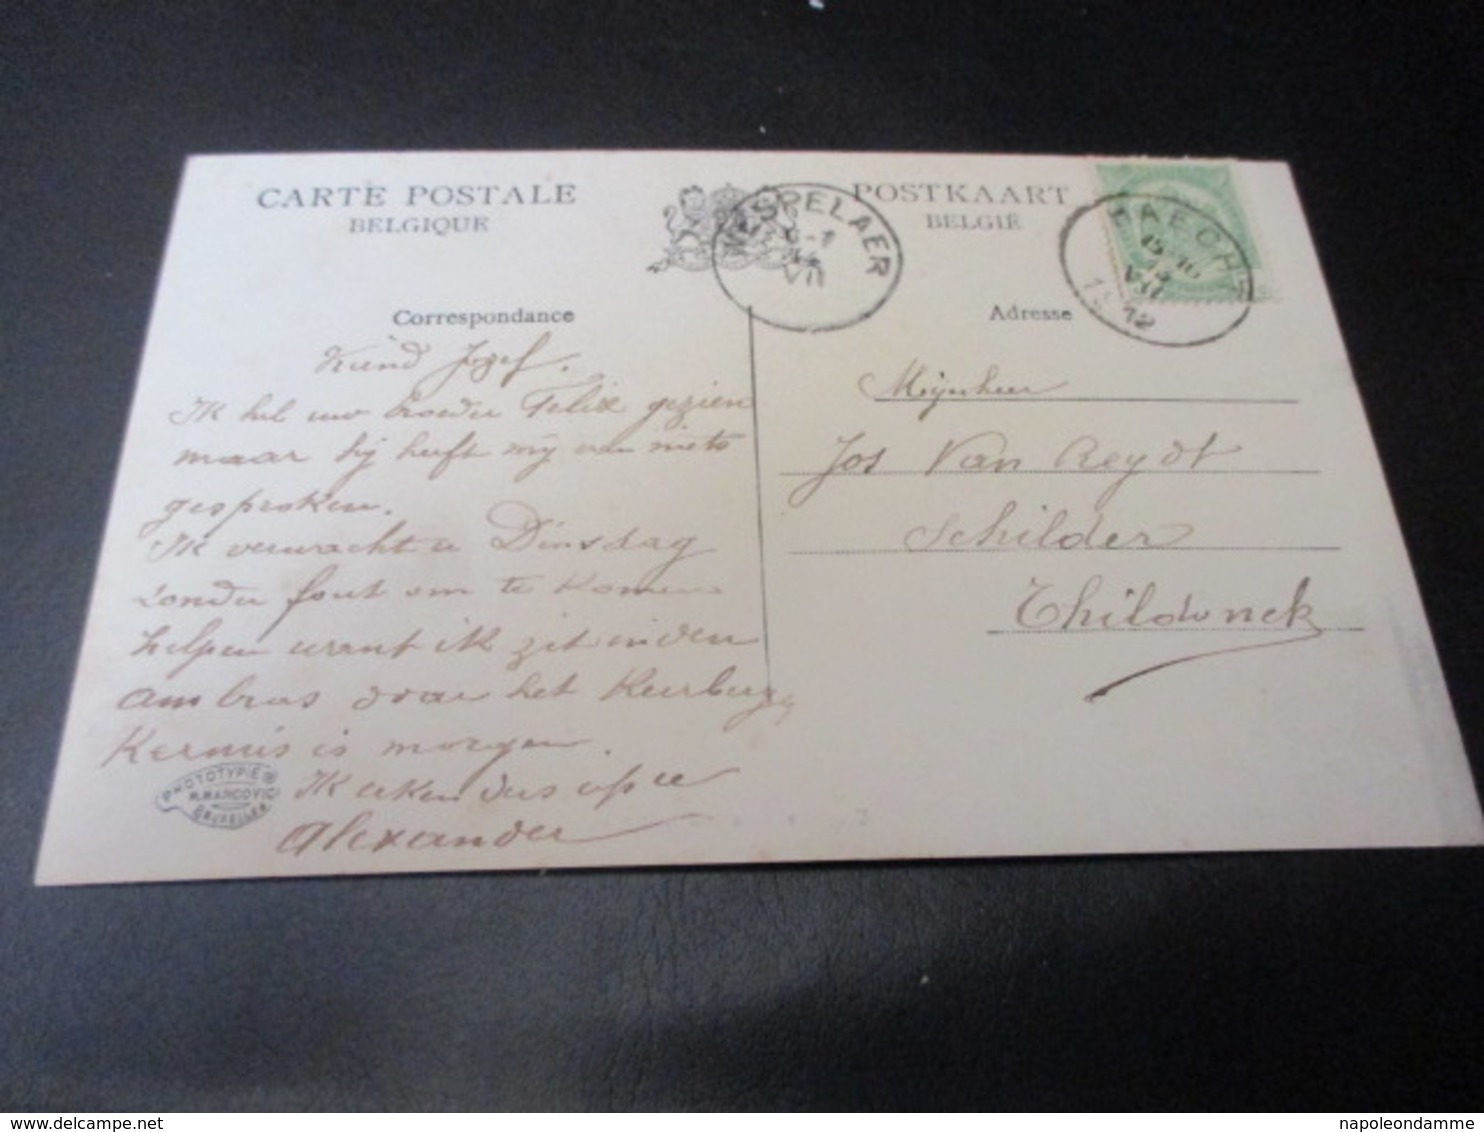 CARTE POSTALE
BELGIQUE
POSTKAART
BELGIË
WESPELAER
VII
HAECHT
VII
1912
Correspondance
Adresse
Vriend Jozef.
Ik heb uw broeder Felix gezien
maar hij heeft mij van niets
gesproken.
Ik verwacht u Dinsdag
zonder fout om te komen
helpen want ik zit in den
ambras voor het Keerberg
Kermis is morgen.
Ik reken dus op u
Alexander
Mijnheer
Jos Van Reydt
Schilder
Thildonck
PHOTOTYPIE
M. MARCOVICI
BRUXELLES
napoleondamme